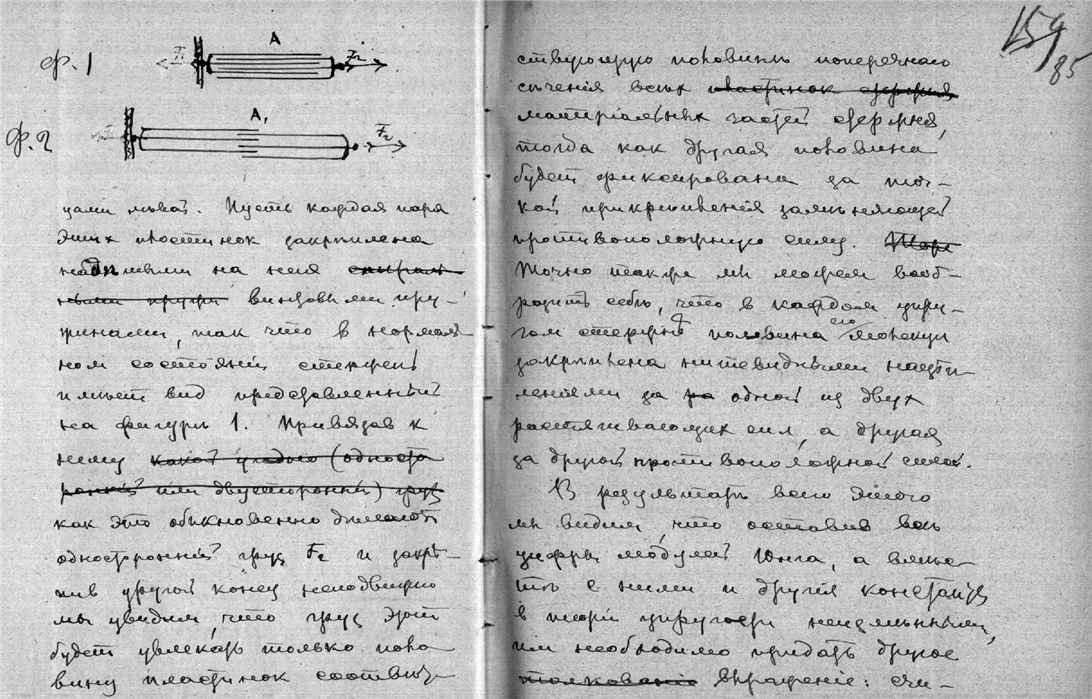 ф. 1
A
F₂
ф. 2
A₁
F₂
цами львой. Пусть каждая пара
этих пластинок закрѣплена
надѣтыми на нея спираль-
ными пружи винтовыми пру-
жинами, так что в нормаль-
ном состоянiи стержень
имѣет вид представленный
на фигурѣ 1. Привязав к
нему какой угодно (односто
роннiй или двусторонный) груз
как это обыкновенно дѣлают
одностороннiй груз F₂ и закрѣ-
пив другой конец неподвижно
мы увидим, что груз этот
будет увлекать только поло
вину пластинок соотвѣт-
159
85
ствующую половинѣ поперечнаго
сѣченiя всѣх пластинок стержня
матерiальных частей стержня,
тогда как другая половина
будет фиксирована за точ-
кой прикрѣпленiя замѣняющей
противоположную силу.
Точно также мы можем вооб-
разить себѣ, что в каждом упру-
гом стержнѣ половина его молекул
закрѣплена нитевидными нацѣп-
ленiями за одной из двух
растягивающих сил, а другая
за другой противоположной силой.
В результатѣ всего этого
мы видим, что оставив всѣ
цифры модулей Юнга, а вмѣс-
тѣ с ними и другiя константы
в теорiи упругости неизмѣнными,
им необходимо придать другое
толкованiе выраженiе: